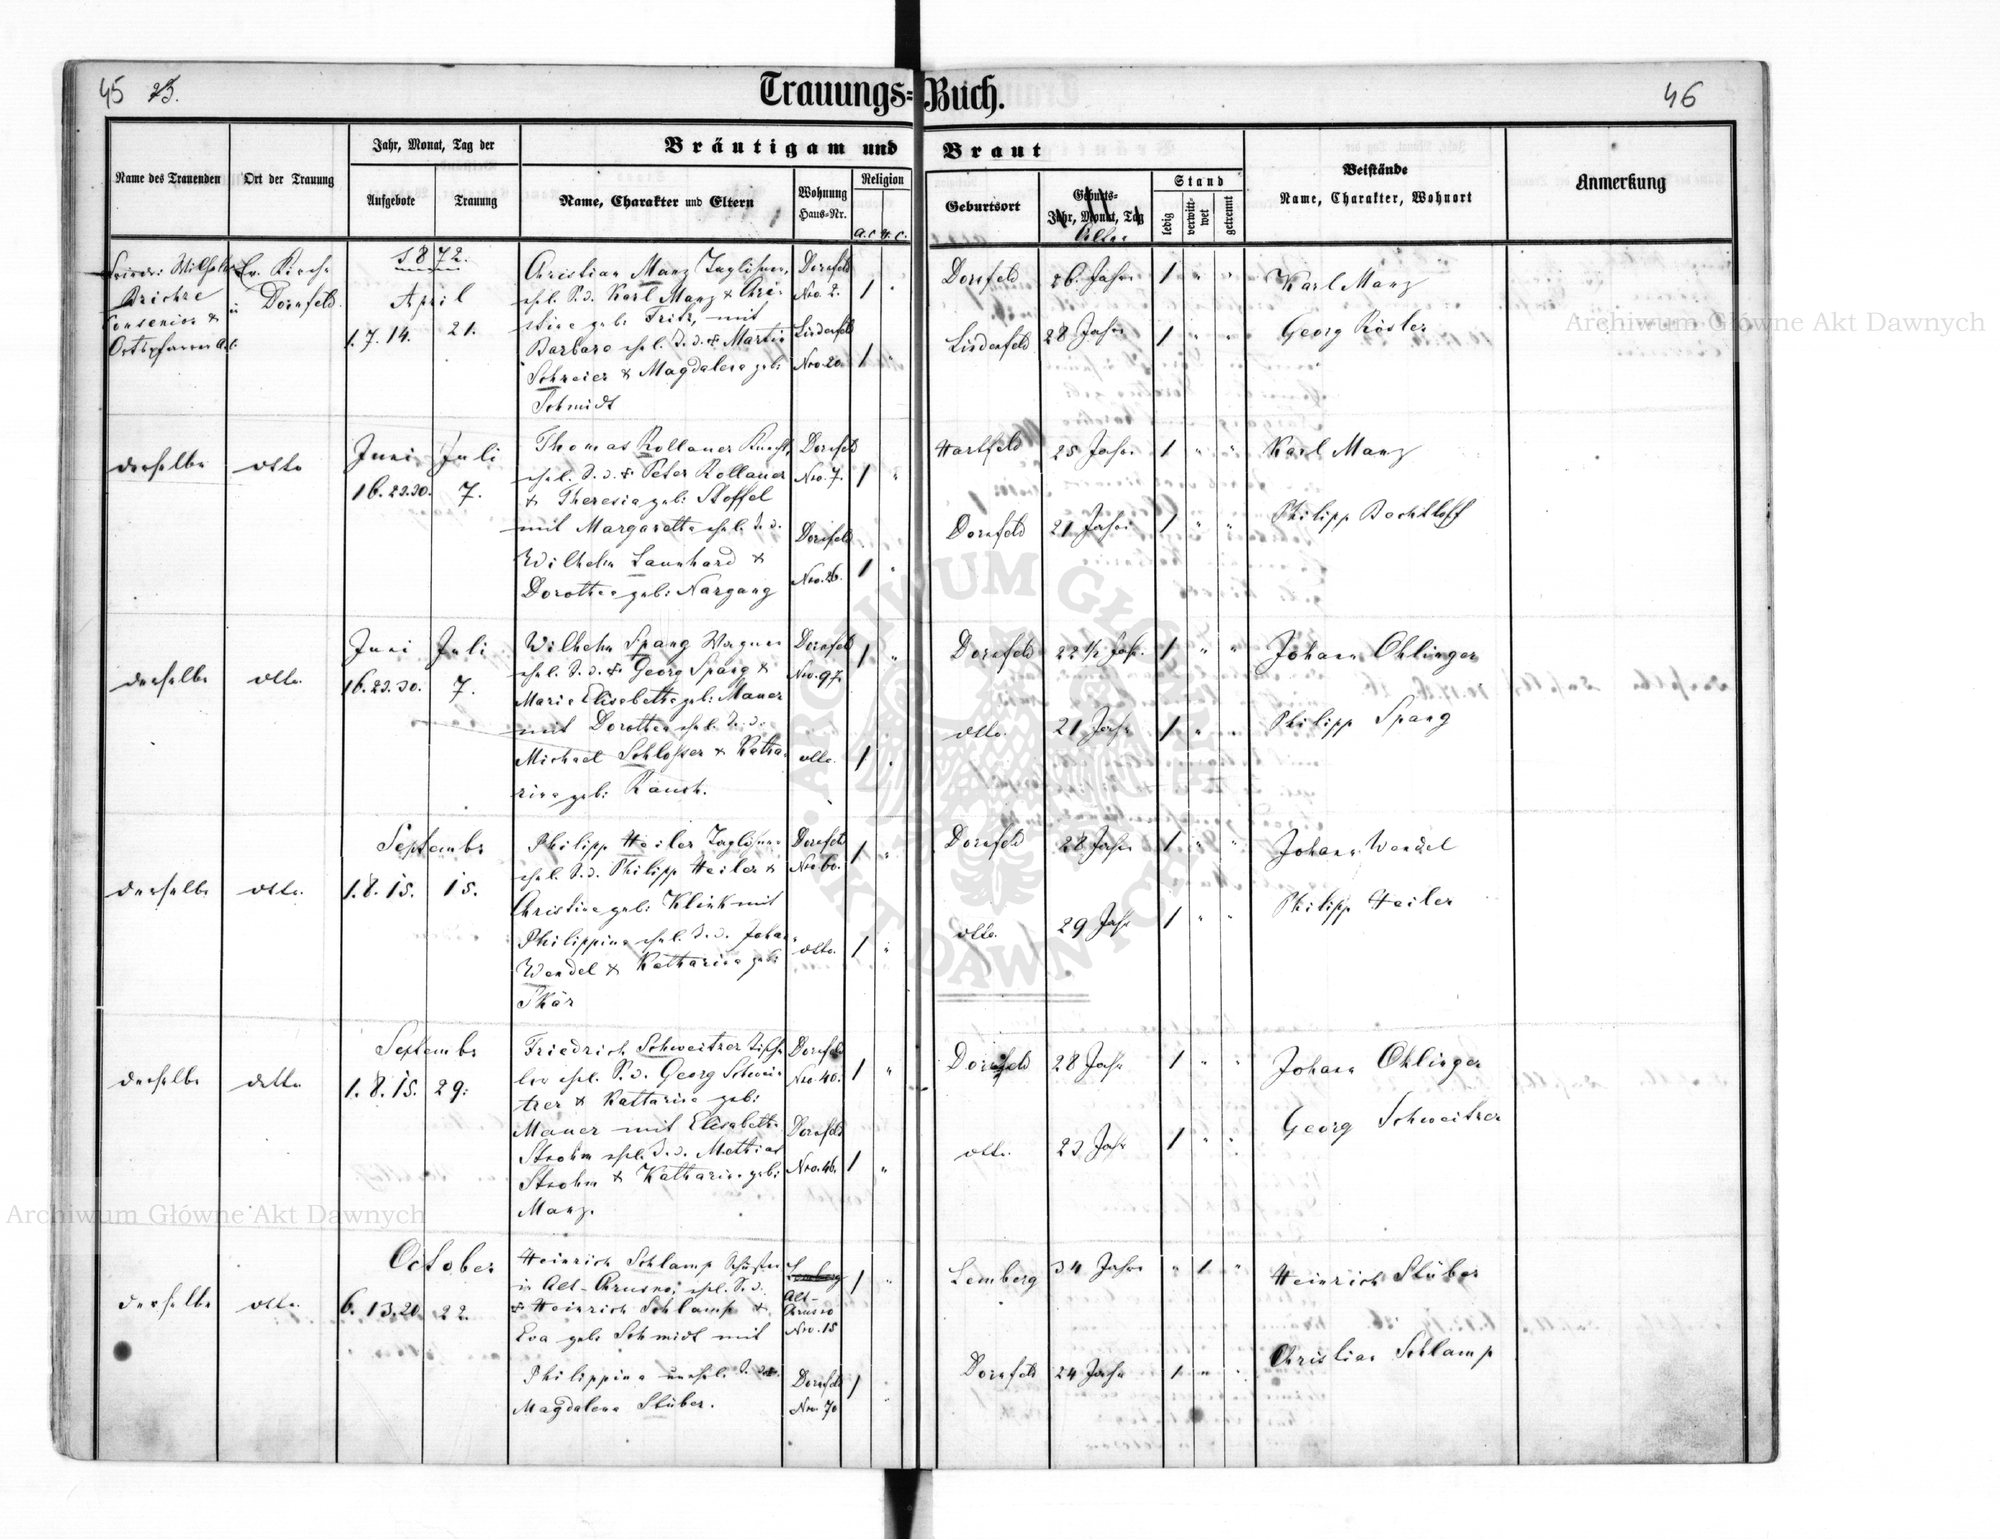 45 23.
Trauungs-Buch.
46
Name des Trauenden
Ort der Trauung
Jahr, Monat, Tag der
Aufgebote
Trauung
Bräutigam und Braut
Name, Charakter und Eltern
Wohnung
Haus-Nr.
Religion
a. c. h. c.
Geburtsort
Geburts-
Jahr, Monat, Tag
Alter
Stand
ledig
verwitt-
wet
getrennt
Beistände
Name, Charakter, Wohnort
Anmerkung
Ev. Kirche
in Dornfeld.
1872.
April
1. 7. 14. 21.
Christian Manz Taglöhner,
ehel. S. d. Karl Manz & Chri-
stine geb: Fritz, mit
Barbara ehel. T. d. + Martin
Schreier & Magdalena geb:
Schmidt
Dornfeld
Nro. 2.
Lindenfeld
Nro. 20.
1 "
1 "
Dornfeld 26 Jahre 1 " "
Lindenfeld 28 Jahre 1 " "
Karl Manz
Georg Röster
derselbe
dtto
Juni Juli
16. 23. 30. 7.
Thomas Kollauer Knecht,
ehel. S. d. + Peter Kollauer
& Theresia geb: Stoffel
mit Margaretha ehel. T. d.
Wilhelm Launhard &
Dorothea geb: Nargang
Dornfeld
Nro. 7.
Dornfeld
Nro. 26.
1 "
1 "
Hartfeld 25 Jahre 1 " "
Dornfeld 21 Jahre 1 " "
Karl Manz
Philipp Bechtloff
derselbe
dtto.
Juni Juli
16. 23. 30. 7.
Wilhelm Spang Wagner
ehel. S. d. + Georg Spang &
Maria Elisabetha geb: Mauer
mit Dorothea ehel. T. d.
Michael Schlosser & Katha-
rina geb: Rausch.
Dornfeld
Nro. 97.
dtto.
1 "
1 "
Dornfeld 22 1/2 Jah. 1 " "
dtto. 21 Jahr 1 " "
Johann Ohlinger
Philipp Spang
derselbe
dtto.
September
1. 8. 15. 15.
Philipp Heiler Taglöhner
ehel. S. d. Philipp Heiler &
Christina geb: Klink mit
Philippina ehel. T. d. Johan
Wendel & Katharina geb:
Skär
Dornfeld
Nro. 60.
dtto.
1 "
1 "
Dornfeld 28 Jahre 1 " "
dtto. 29 Jahr 1 " "
Johann Wendel
Philipp Heiler
derselbe
detto
September
1. 8. 15. 29.
Friedrich Schweitzer Tisch-
ler ehel. S. d. Georg Schwei-
tzer & Katharina geb:
Mauer mit Elisabeth
Strohm ehel. T. d. Mathias
Strohm & Katharina geb:
Manz.
Dornfeld
Nro. 40.
Dornfeld
Nro. 46.
1 "
1 "
Dornfeld 28 Jahr 1 " "
dtto. 23 Jahr 1 " "
Johann Ohlinger
Georg Schweitzer
derselbe
dtto.
October
6. 13. 20. 22.
Heinrich Schlamp Schuster
in Alt-Chrusno, ehel. S. d.
+ Heinrich Schlamp &
Eva geb: Schmidt mit
Philippina unehel. T. der
Magdalena Stüber.
Lemberg
Alt-
Chrusno
Nro. 15
Dornfeld
Nro. 70
1 "
1 "
Lemberg 34 Jahre " 1 "
Dornfeld 24 Jahr 1 " "
Heinrich Stüber
Christian Schlamp
Archiwum Główne Akt Dawnych
Archiwum Główne Akt Dawnych
ARCHIWUM GŁÓWNE AKT DAWNYCH